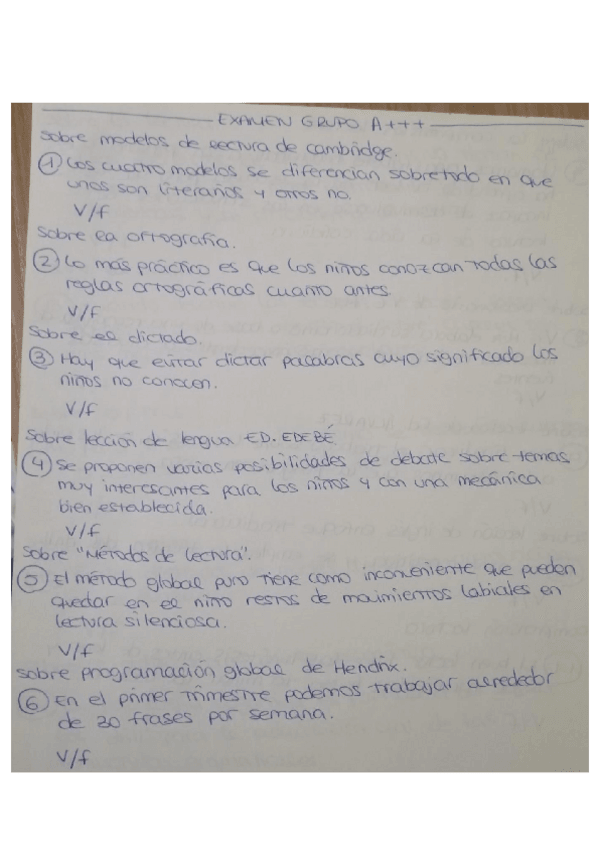 EXAMEN GRUPO A+++
sobre modelos de lectura de cambridge.
① Los cuatro modelos se diferencian sobretodo en que
unos son literarios y otros no.
V/f
sobre la ortografía.
② Lo más práctico es que los niños conozcan todas las
reglas ortográficas cuanto antes.
V/f
sobre el dictado.
③ Hay que evitar dictar palabras cuyo significado los
niños no conocen.
V/f
sobre lección de lengua ED. EDEBÉ
④ Se proponen varias posibilidades de debate sobre temas
muy interesantes para los niños y con una mecánica
bien establecida.
V/f
sobre "Métodos de lectura".
⑤ El método global puro tiene como inconveniente que pueden
quedar en el niño restos de movimientos labiales en
lectura silenciosa.
V/f
sobre programación global de Hendrix.
⑥ En el primer trimestre podemos trabajar alrededor
de 20 frases por semana.
V/f